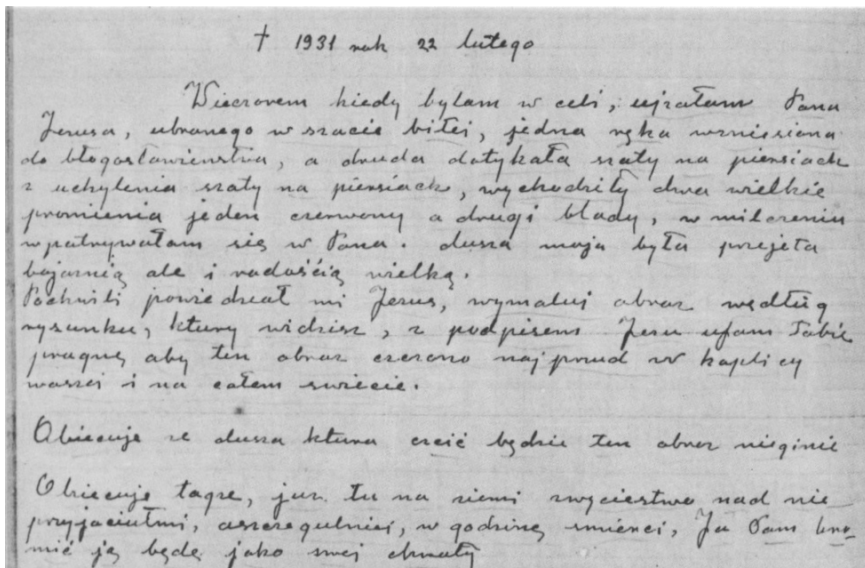 † 1931 rok 22 lutego
Wieczorem kiedy byłam w celi, ujrałam Pana
Jezusa, ubranego w szacie biłei, jedna ręka wzniesiona
do błogosławieństwa, a druda dotykała szaty na piersiach
z uchylenia szaty na piersiach, wychodziły dwa wielkie
promienia jeden czerwony a drugi blady, w milczeniu
wpatrywałam się w Pana. dusza moja była przejęta
bojaznią ale i radościią wielką.
Pochwili powiedział mi Jezus, wymaluj obraz według
rysunku, ktury widzisz, z podpisem Jezu ufam Tobie
pragnę aby ten obraz czczono najprud w kaplicy
waszei i na całem swiecie.
Obiecuje ze dusza ktura czcić będzie ten obraz nieginie
Obiecuje tagze, juz tu na ziemi zwycięstwo nad nie
przyjaciułmi, aszczegulniei, w godzinę smierci, Ja Pam bro-
nić ją będę jako swej chwały